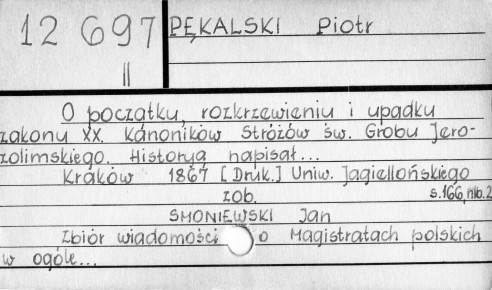 12 697 PĘKALSKI Piotr
II
O początku, rozkrzewieniu i upadku
zakonu XX. Kanoników Stróżów św. Grobu Jero-
zolimskiego. Historyą napisał...
Kraków 1867 [Druk.] Uniw. Jagiellońskiego
zob. s.166, nlb.2
SMONIEWSKI Jan
Zbiór wiadomości o Magistratach polskich
w ogóle...